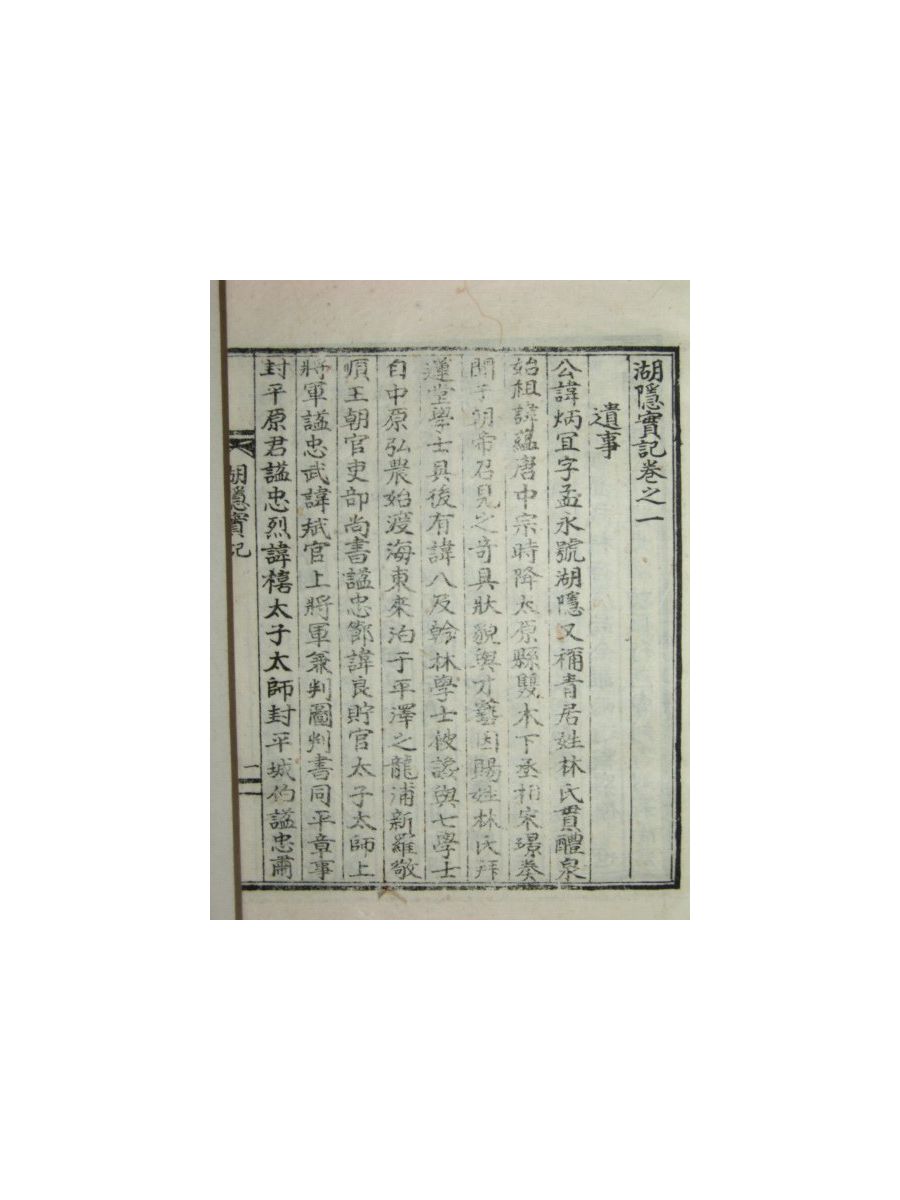 湖隱實記卷之一
遺事
公諱炳宜字孟永號湖隱又稱青居姓林氏貫醴泉
始祖諱蘊唐中宗時降太原縣雙木下丞相宋璟奏
聞于朝帝召見之奇其狀貌與才藝因賜姓林氏拜
蓮堂學士其後有諱八及翰林學士被讒與七學士
自中原弘農始渡海東來泊于平澤之龍浦新羅敬
順王朝官吏部尚書謚忠節諱良貯官太子太師上
將軍謚忠武諱斌官上將軍兼判圖判書同平章事
封平原君謚忠烈諱禧太子太師封平城伯謚忠肅
湖隱實記
一